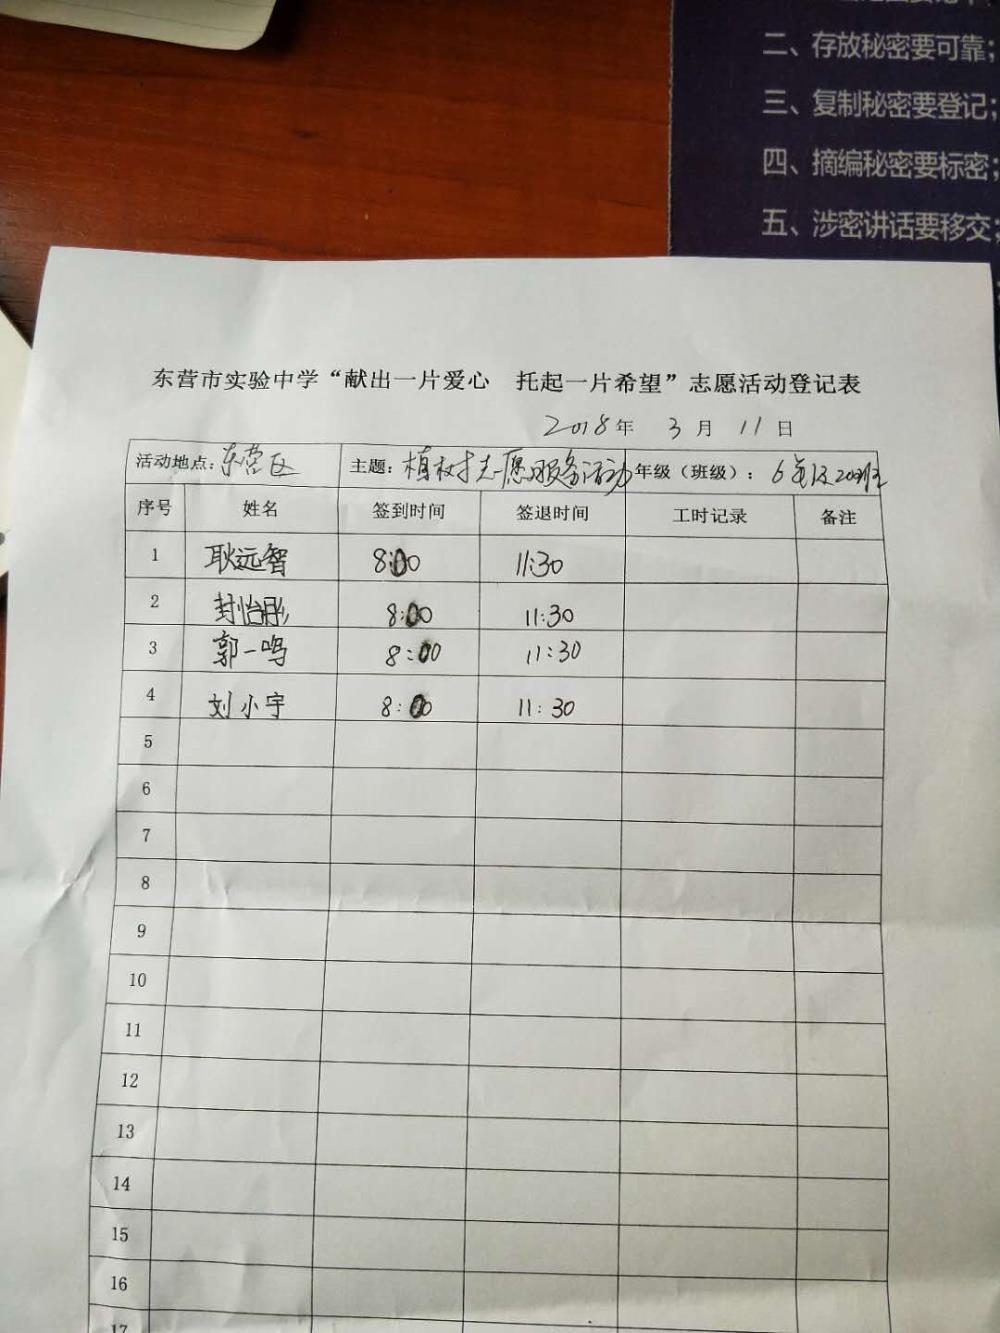 二、存放秘密要可靠；
三、复制秘密要登记；
四、摘编秘密要标密；
五、涉密讲话要移交；
东营市实验中学“献出一片爱心　托起一片希望”志愿活动登记表
2018年 3月 11日
活动地点：东营区 主题：植树志愿服务活动 年级（班级）：6年级20班
序号 姓名 签到时间 签退时间 工时记录 备注
1 耿远智 8:00 11:30
2 封怡彤 8:00 11:30
3 郭一鸣 8:00 11:30
4 刘小宇 8:00 11:30
5
6
7
8
9
10
11
12
13
14
15
16
17